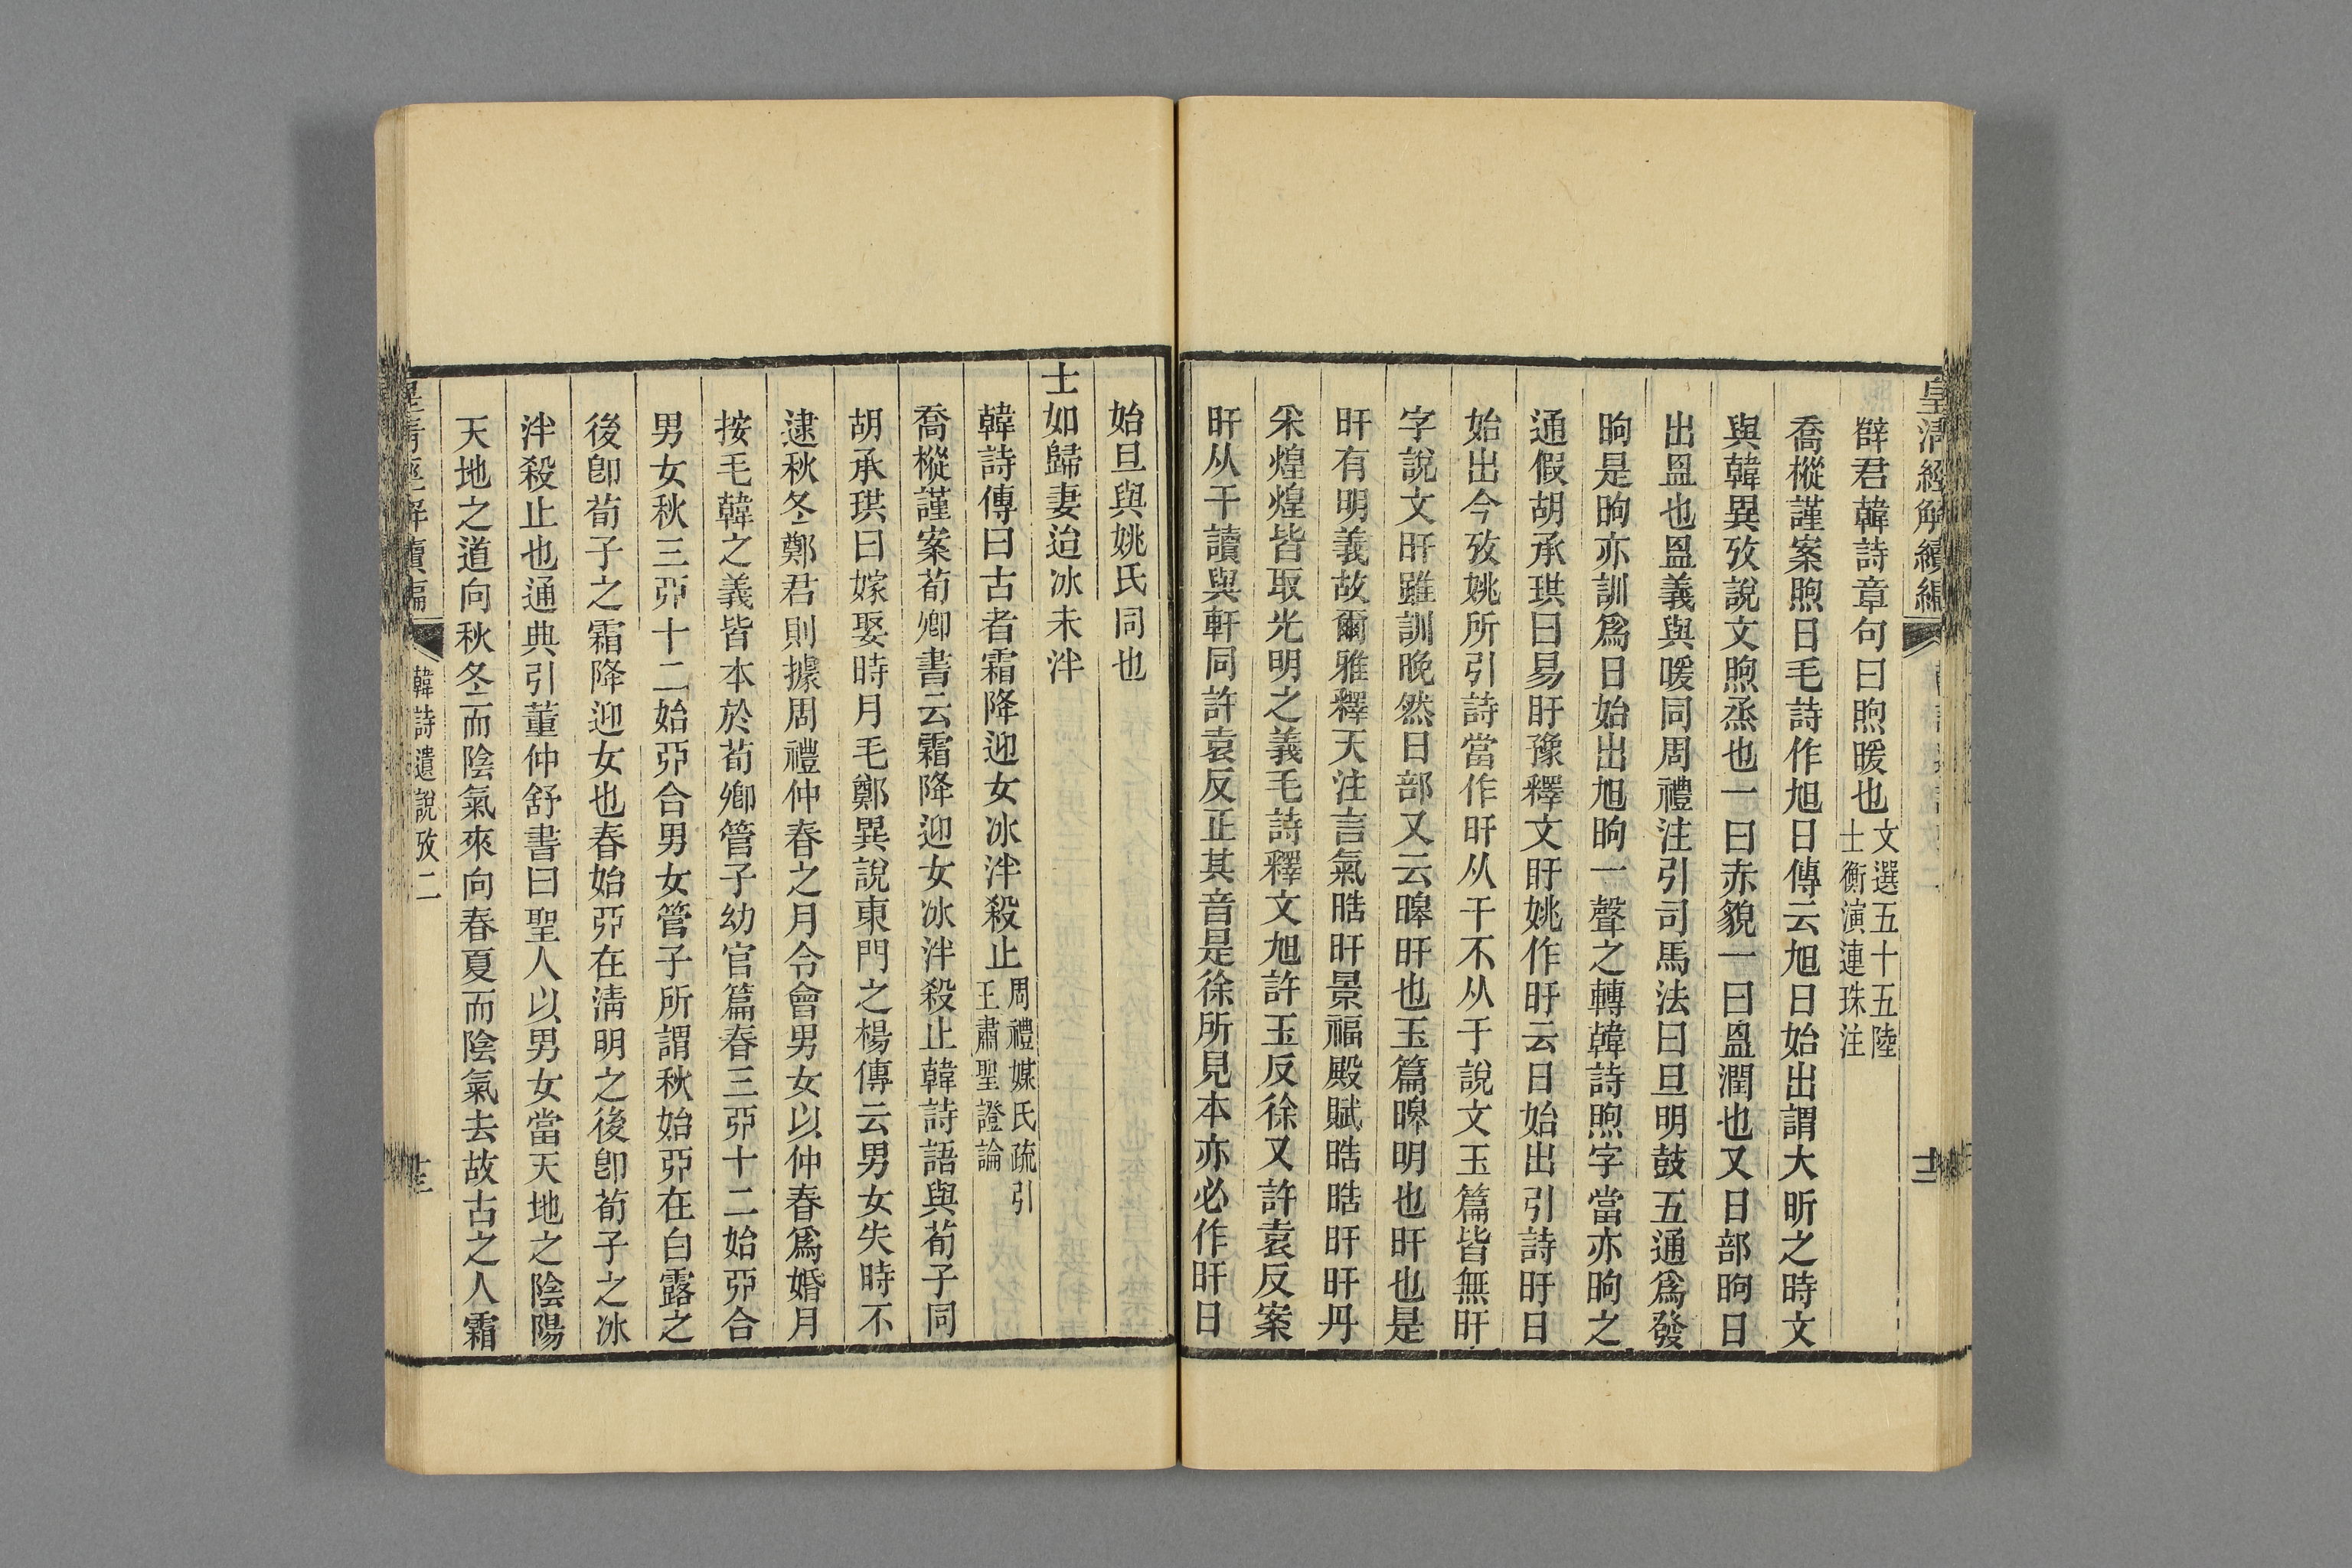 皇清經解續編
十二
薛君韓詩章句曰煦暖也文選五十五陸士衡演連珠注
喬樅謹案煦日毛詩作旭日傳云旭日始出謂大昕之時文
與韓異攷說文煦烝也一曰赤貌一曰𥁕潤也又日部昫日
出𥁕也𥁕義與暖同周禮注引司馬法曰旦明鼓五通爲發
昫是昫亦訓爲日始出旭昫一聲之轉韓詩煦字當亦昫之
通假胡承珙曰易盱豫釋文盱姚作旴云日始出引詩旴日
始出今攷姚所引詩當作旰从干不从于說文玉篇皆無旴
字說文旰雖訓晚然日部又云暤旰也玉篇暤明也旰也是
旰有明義故爾雅釋天注言氣晧旰景福殿賦晧晧旰旰丹
采煌煌皆取光明之義毛詩釋文旭許玉反徐又許袁反案
旰从干讀與軒同許袁反正其音是徐所見本亦必作旰日
始旦與姚氏同也
士如歸妻迨冰未泮
韓詩傳曰古者霜降迎女冰泮殺止周禮媒氏疏引王肅聖證論
喬樅謹案荀卿書云霜降迎女冰泮殺止韓詩語與荀子同
胡承珙曰嫁娶時月毛鄭異說東門之楊傳云男女失時不
逮秋冬鄭君則據周禮仲春之月令會男女以仲春爲婚月
按毛韓之義皆本於荀卿管子幼官篇春三卯十二始卯合
男女秋三卯十二始卯合男女管子所謂秋始卯在白露之
後卽荀子之霜降迎女也春始卯在清明之後卽荀子之冰
泮殺止也通典引董仲舒書曰聖人以男女當天地之陰陽
天地之道向秋冬而陰氣來向春夏而陰氣去故古之人霜
皇清經解續編
韓詩遺說攷二
十三